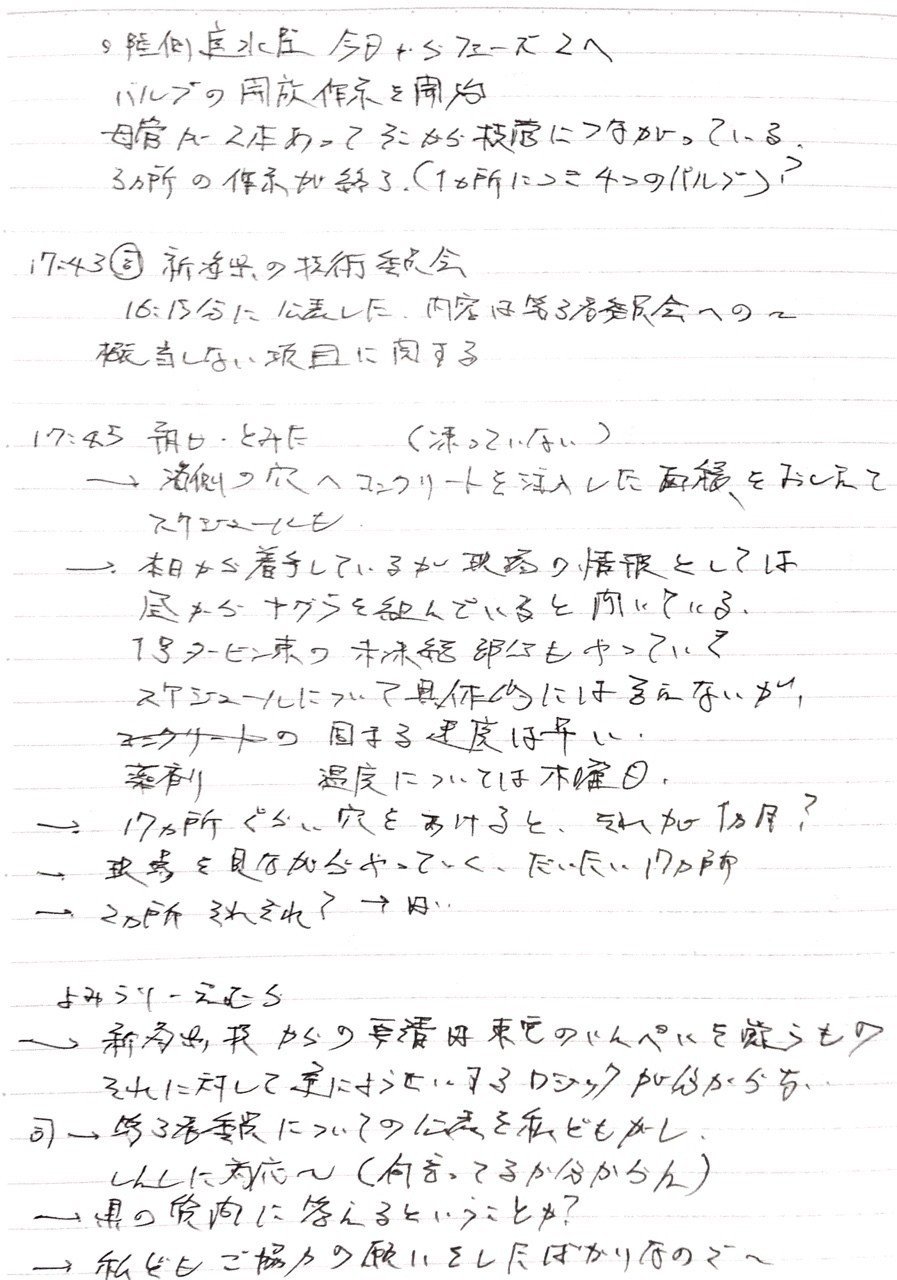 陸側遮水壁 今日からフェーズ2へ
バルブの開放作業を開始
母管が2本あってそこから枝管につながっている.
3ヵ所の作業が終了.(1ヵ所につき4つのバルブ)?
17:43 司 新潟県の技術委員会
16:15分に公表した. 内容は第3者委員会への〜
該当しない項目に関する
17:45 朝日・とみた (凍っていない)
→ 海側の穴へコンクリートを注入した面積をおしえて
スケジュールも
→ 本日から着手しているが現場の情報としては
昼からヤグラを組んでいると聞いている.
1号タービン東の未凍結部分もやっていく
スケジュールについて具体的には言えないが,
コンクリートの固まる速度は早い.
薬剤 温度については木曜日.
→ 17ヵ所ぐらい穴をあけると、それが1ヵ月?
→ 現場を見ながらやっていく、だいたい17ヵ所
→ 2ヵ所それぞれ? → はい
よみうり-えむら
→ 新潟県技からの要請は東電のいんぺいを疑うもの
それに対して逆にようせいするロジックが分からない
司 → 第3者委員についての公表を私どもがし.
しんしに対応〜 (何言ってるか分からん)
→ 県の質問に答えるということか?
→ 私どもご協力の願いをしたばかりなので〜